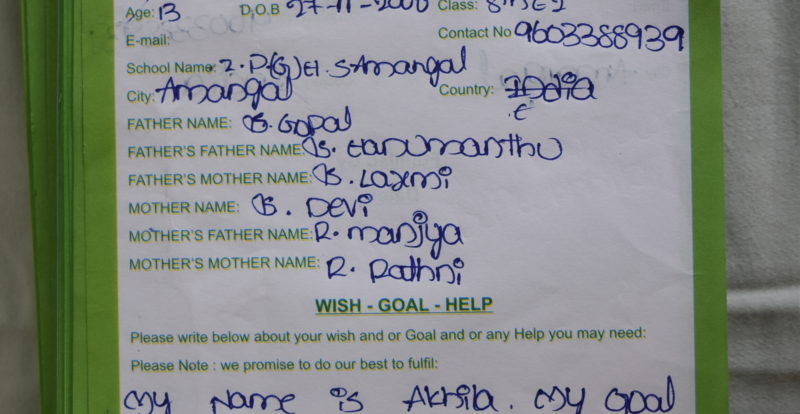 Age: 13 D.O.B 27-11-2000 Class: 8th
E-mail: Contact No 9603388939
School Name: Z.P(G)H.S Amangal
City: Amangal Country: India
FATHER NAME: B. Gopal
FATHER'S FATHER NAME: B. Hanumanthu
FATHER'S MOTHER NAME: B. Laxmi
MOTHER NAME: B. Devi
MOTHER'S FATHER NAME: R. manjya
MOTHER'S MOTHER NAME: R. Rathni
WISH - GOAL - HELP
Please write below about your wish and or Goal and or any Help you may need:
Please Note : we promise to do our best to fulfil:
My Name is Akhila. My Goal